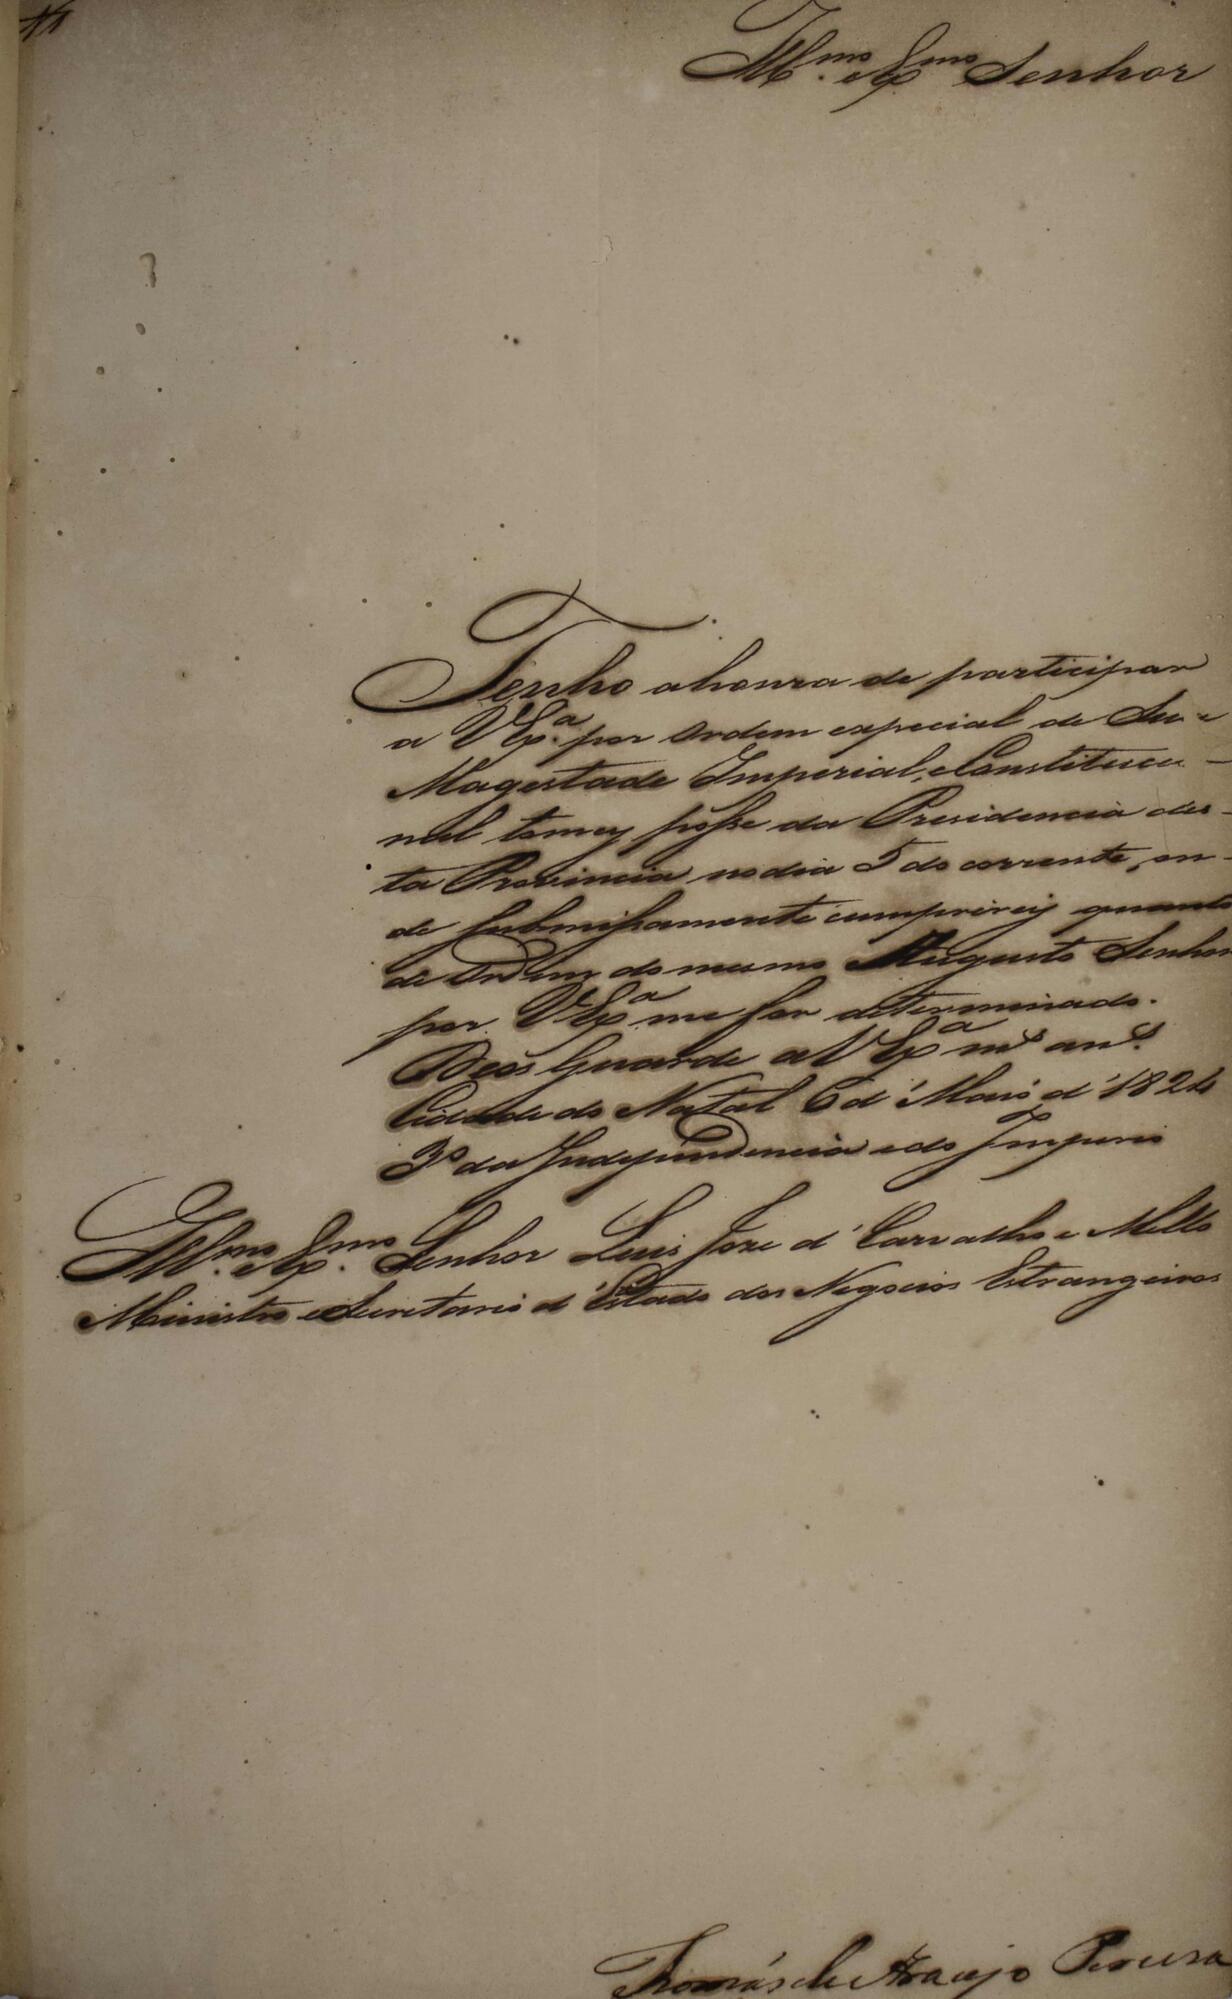 Ill.mo e Ex.mo Senhor
Tenho a honra de participar
a V Ex.a por ordem expecial de Sua
Magestade Imperial, e Constitucio-
nal tomey posse da Presidencia des-
ta Provincia no dia 5 do corrente, on-
de submissamente cumprirey quanto
de Ordem do mesmo Augusto Senhor
por V Ex.a me for determinado.
Deos Guarde a V Ex.a m.s an.s
Cidade do Natal 6 d' Maio d' 1824
3º da Independencia e do Imperio
Ill.mo e Ex.mo Senhor Luis Joze d' Carvalho e Mello
Ministro e Secretario d' Estado dos Negocios Estrangeiros
Thomás de Araujo Pereira